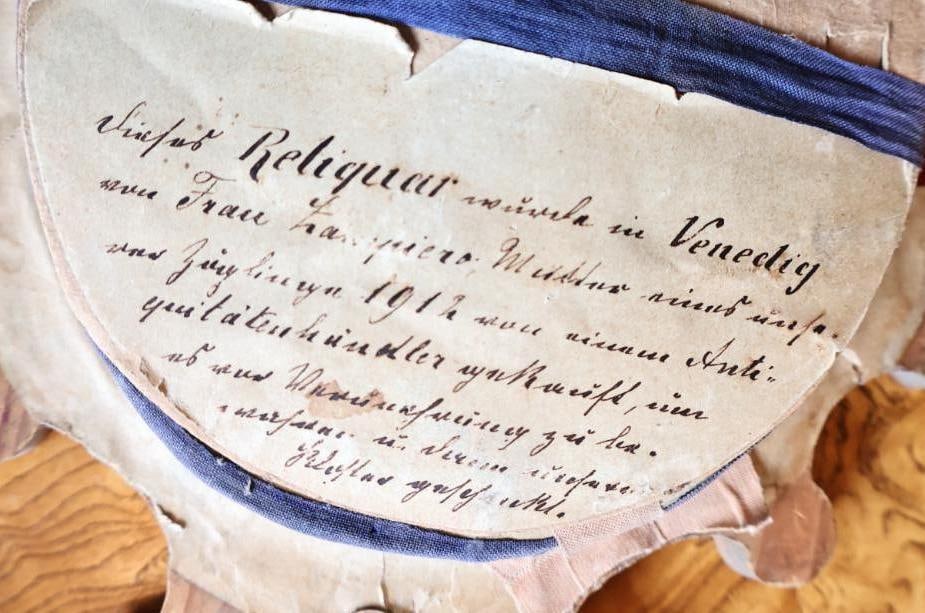 dieses Reliquar wurde in Venedig
von Frau Zampiero, Mutter eines unse-
rer Zöglinge 1912 von einem Anti-
quitätenhändler gekauft, um
es vor Verunehrung zu be-
wahren u. dann unserm
Kloster geschenkt.